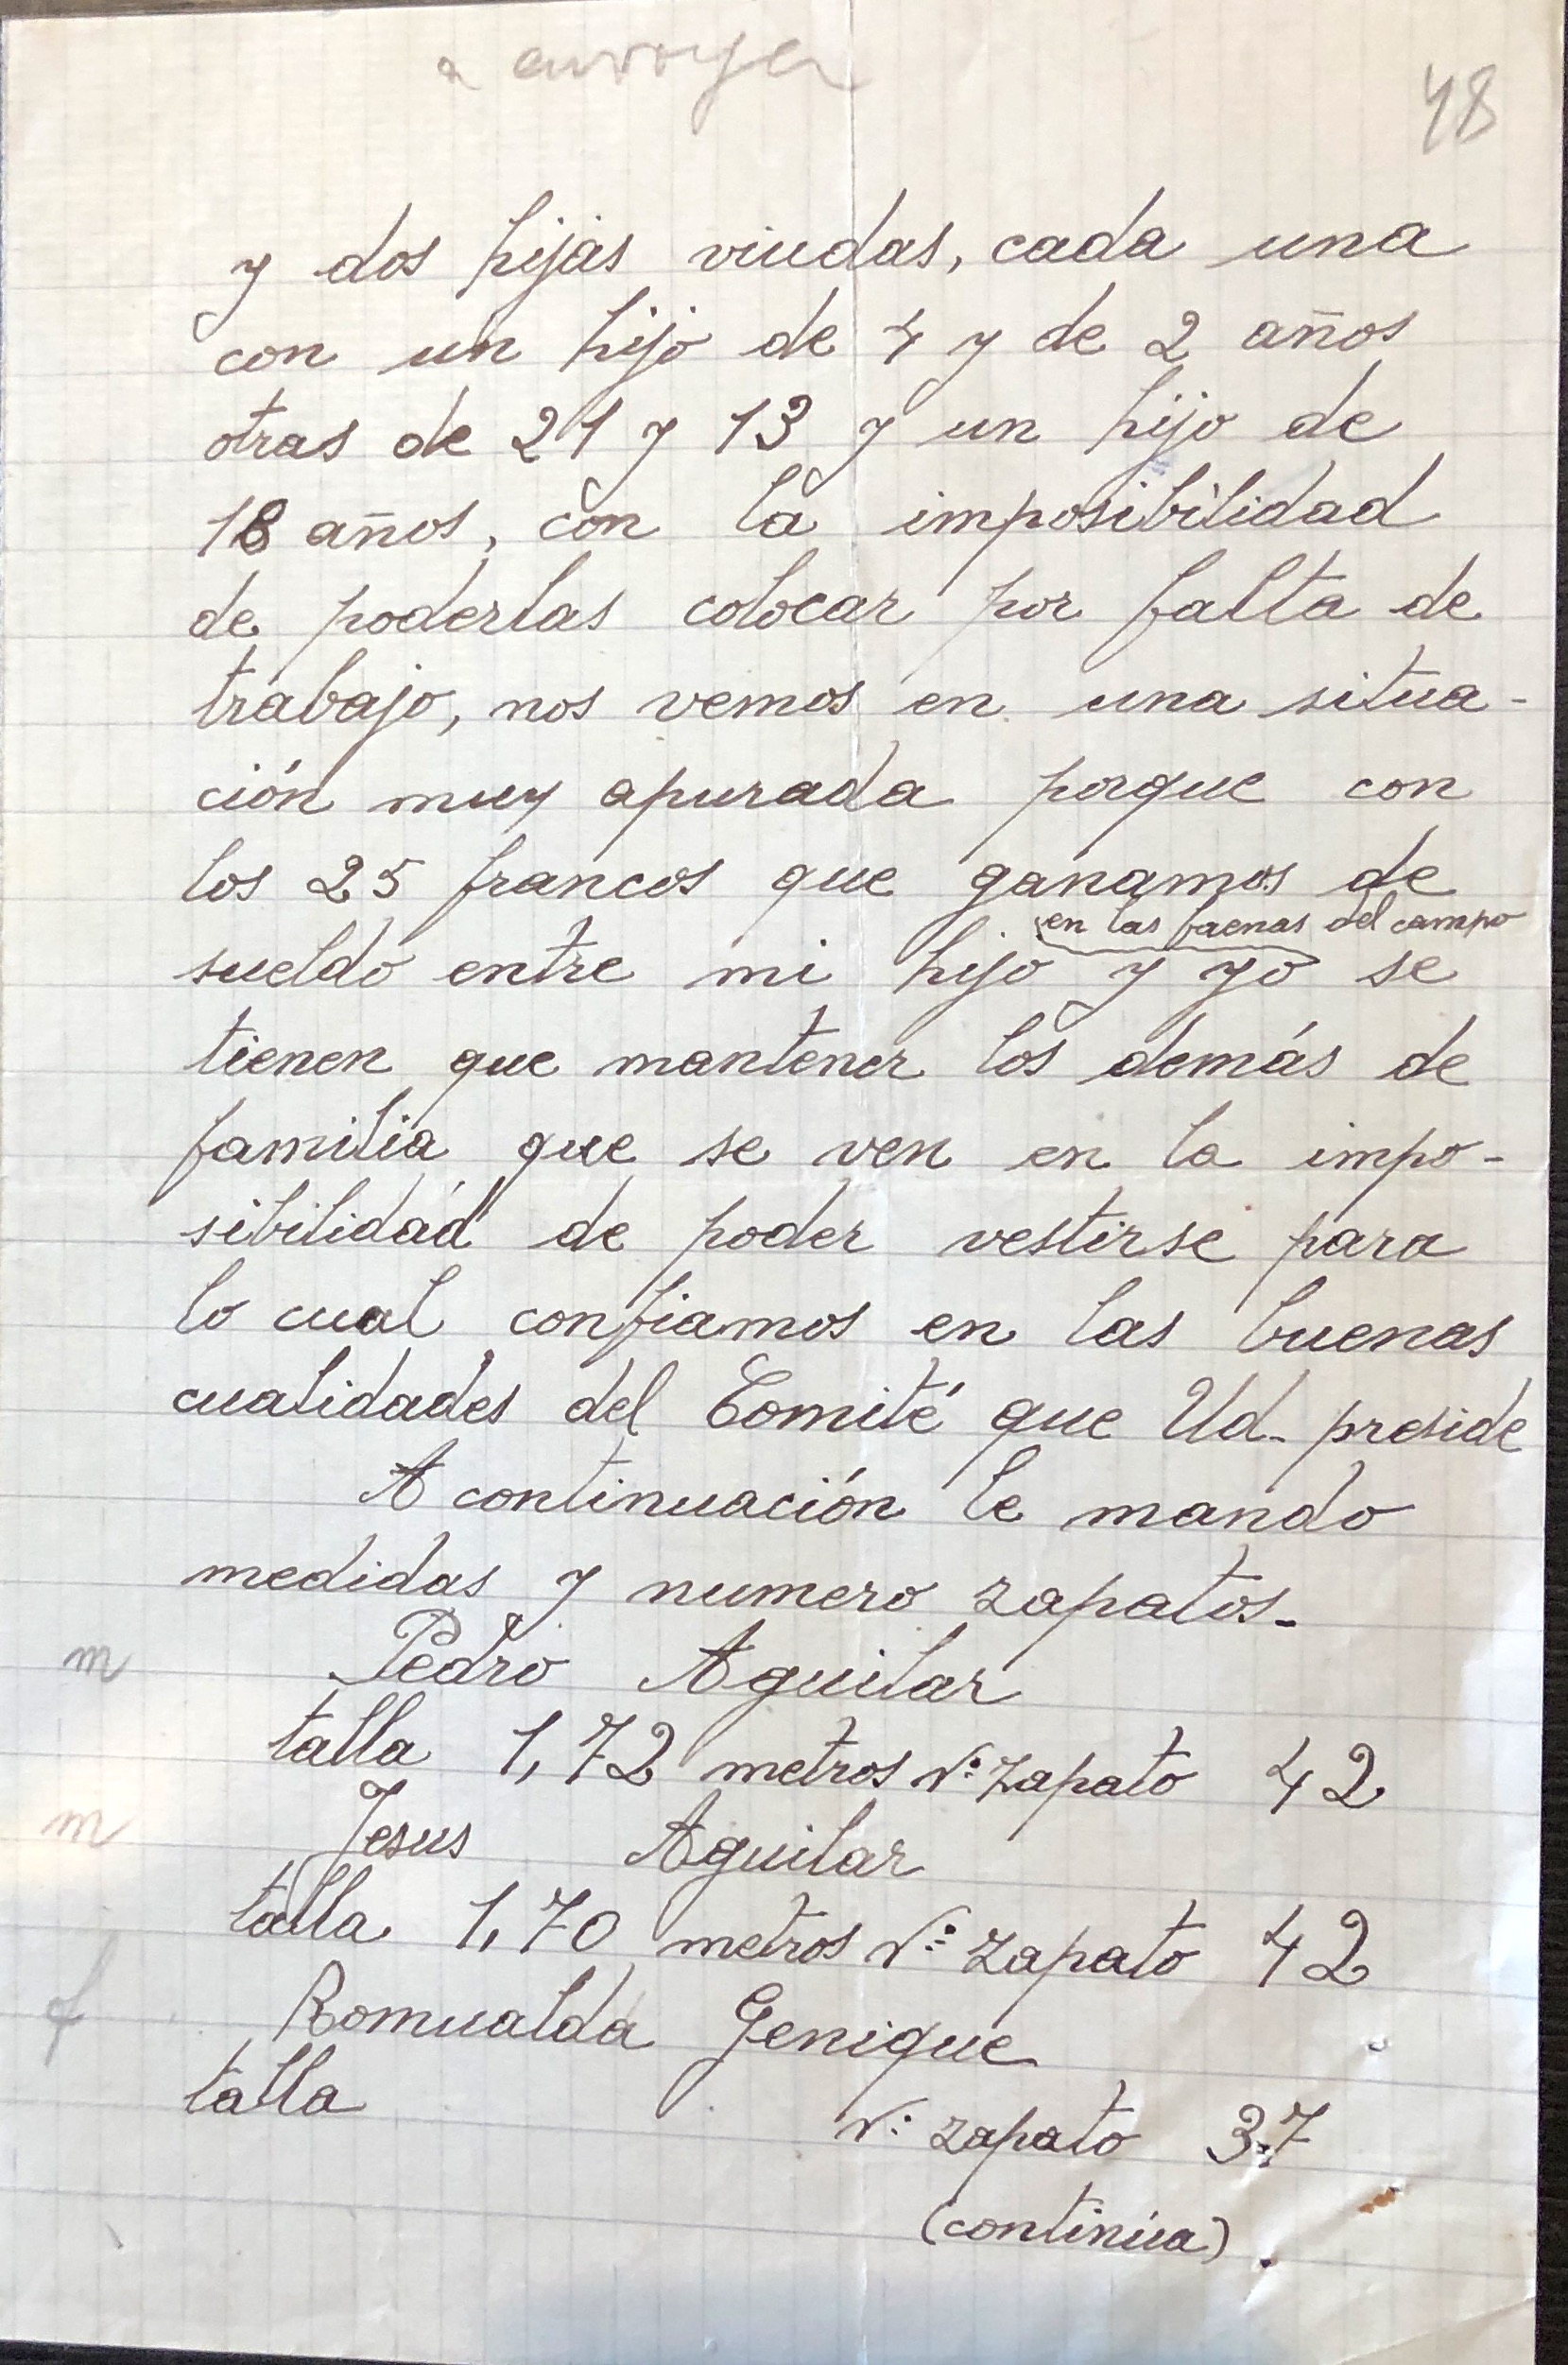 48
y dos hijas viudas, cada una
con un hijo de 4 y de 2 años
otras de 21 y 13 y un hijo de
18 años, con la imposibilidad
de poderlas colocar por falta de
trabajo, nos vemos en una situa-
ción muy apurada porque con
los 25 francos que ganamos de
en las faenas del campo
sueldo entre mi hijo y yo se
tienen que mantener los demás de
familia que se ven en la impo-
sibilidad de poder vestirse para
lo cual confiamos en las buenas
cualidades del Comité que Ud. preside
A continuación le mando
medidas y numero zapatos.
m Pedro Aguilar
talla 1,72 metros Nº zapato 42
m Jesus Aguilar
talla 1,70 metros Nº zapato 42
f Romualda Genique
talla
Nº zapato 37
(continúa).